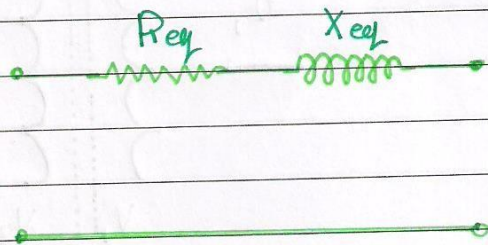 Req Xeq